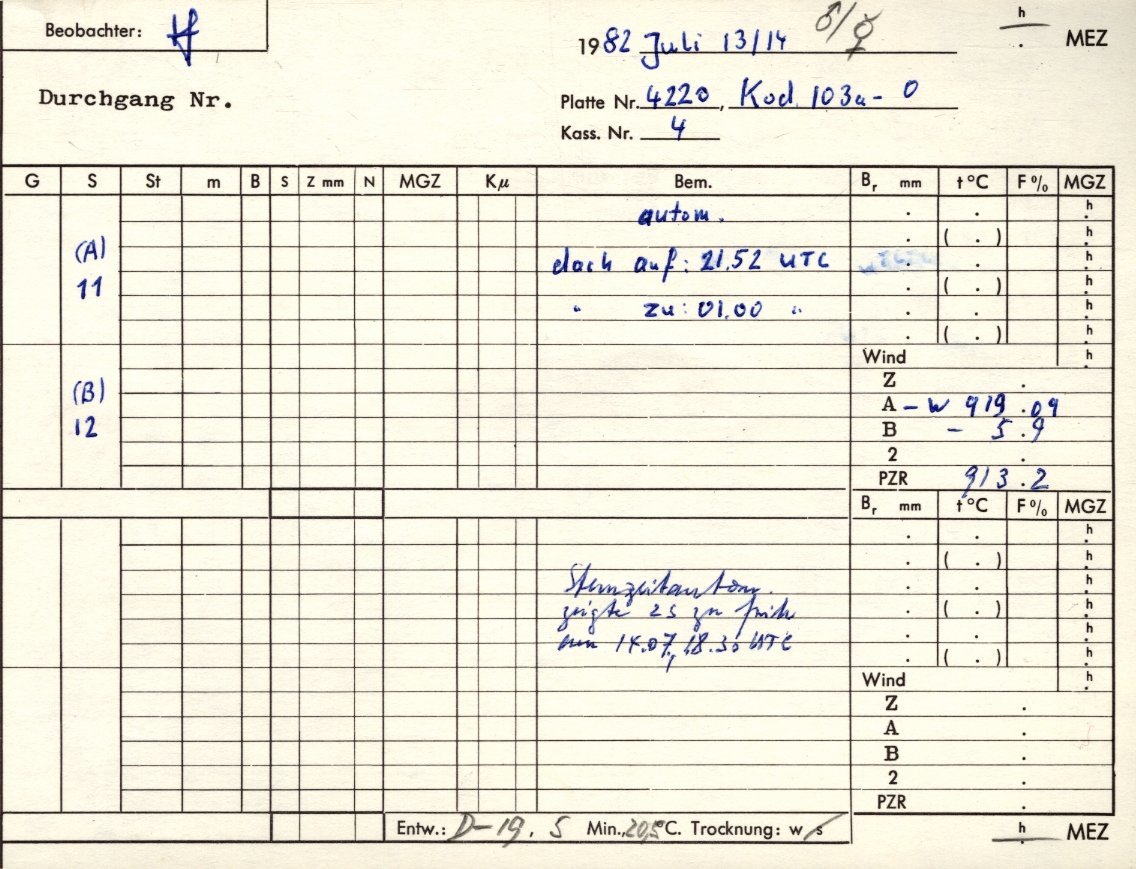 Beobachter: Hf
1982 Juli 13/14 ♂/☿
h . MEZ
Durchgang Nr.
Platte Nr. 4220, Kod. 103a-O
Kass. Nr. 4
G S St m B S Z mm N MGZ Kμ Bem. Br mm t °C F % MGZ
autom. . . h
(A) . ( . ) h
11 dach auf: 21.52 UTC . . h
. ( . ) h
" zu: 01.00 " . . h
. ( . ) h
Wind h
(B) Z .
12 A - W 919.09
B - 5.9
2 .
PZR 913.2
Br mm t °C F % MGZ
. . h
. ( . ) h
Sternzeitautom. . . h
zeigte 2s zu früh . ( . ) h
am 14.07, 18.30 UTC . . h
. ( . ) h
Wind h
Z .
A .
B .
2 .
PZR .
Entw.: D-19. 5 Min., 20,5°C. Trocknung: w/s
h . MEZ